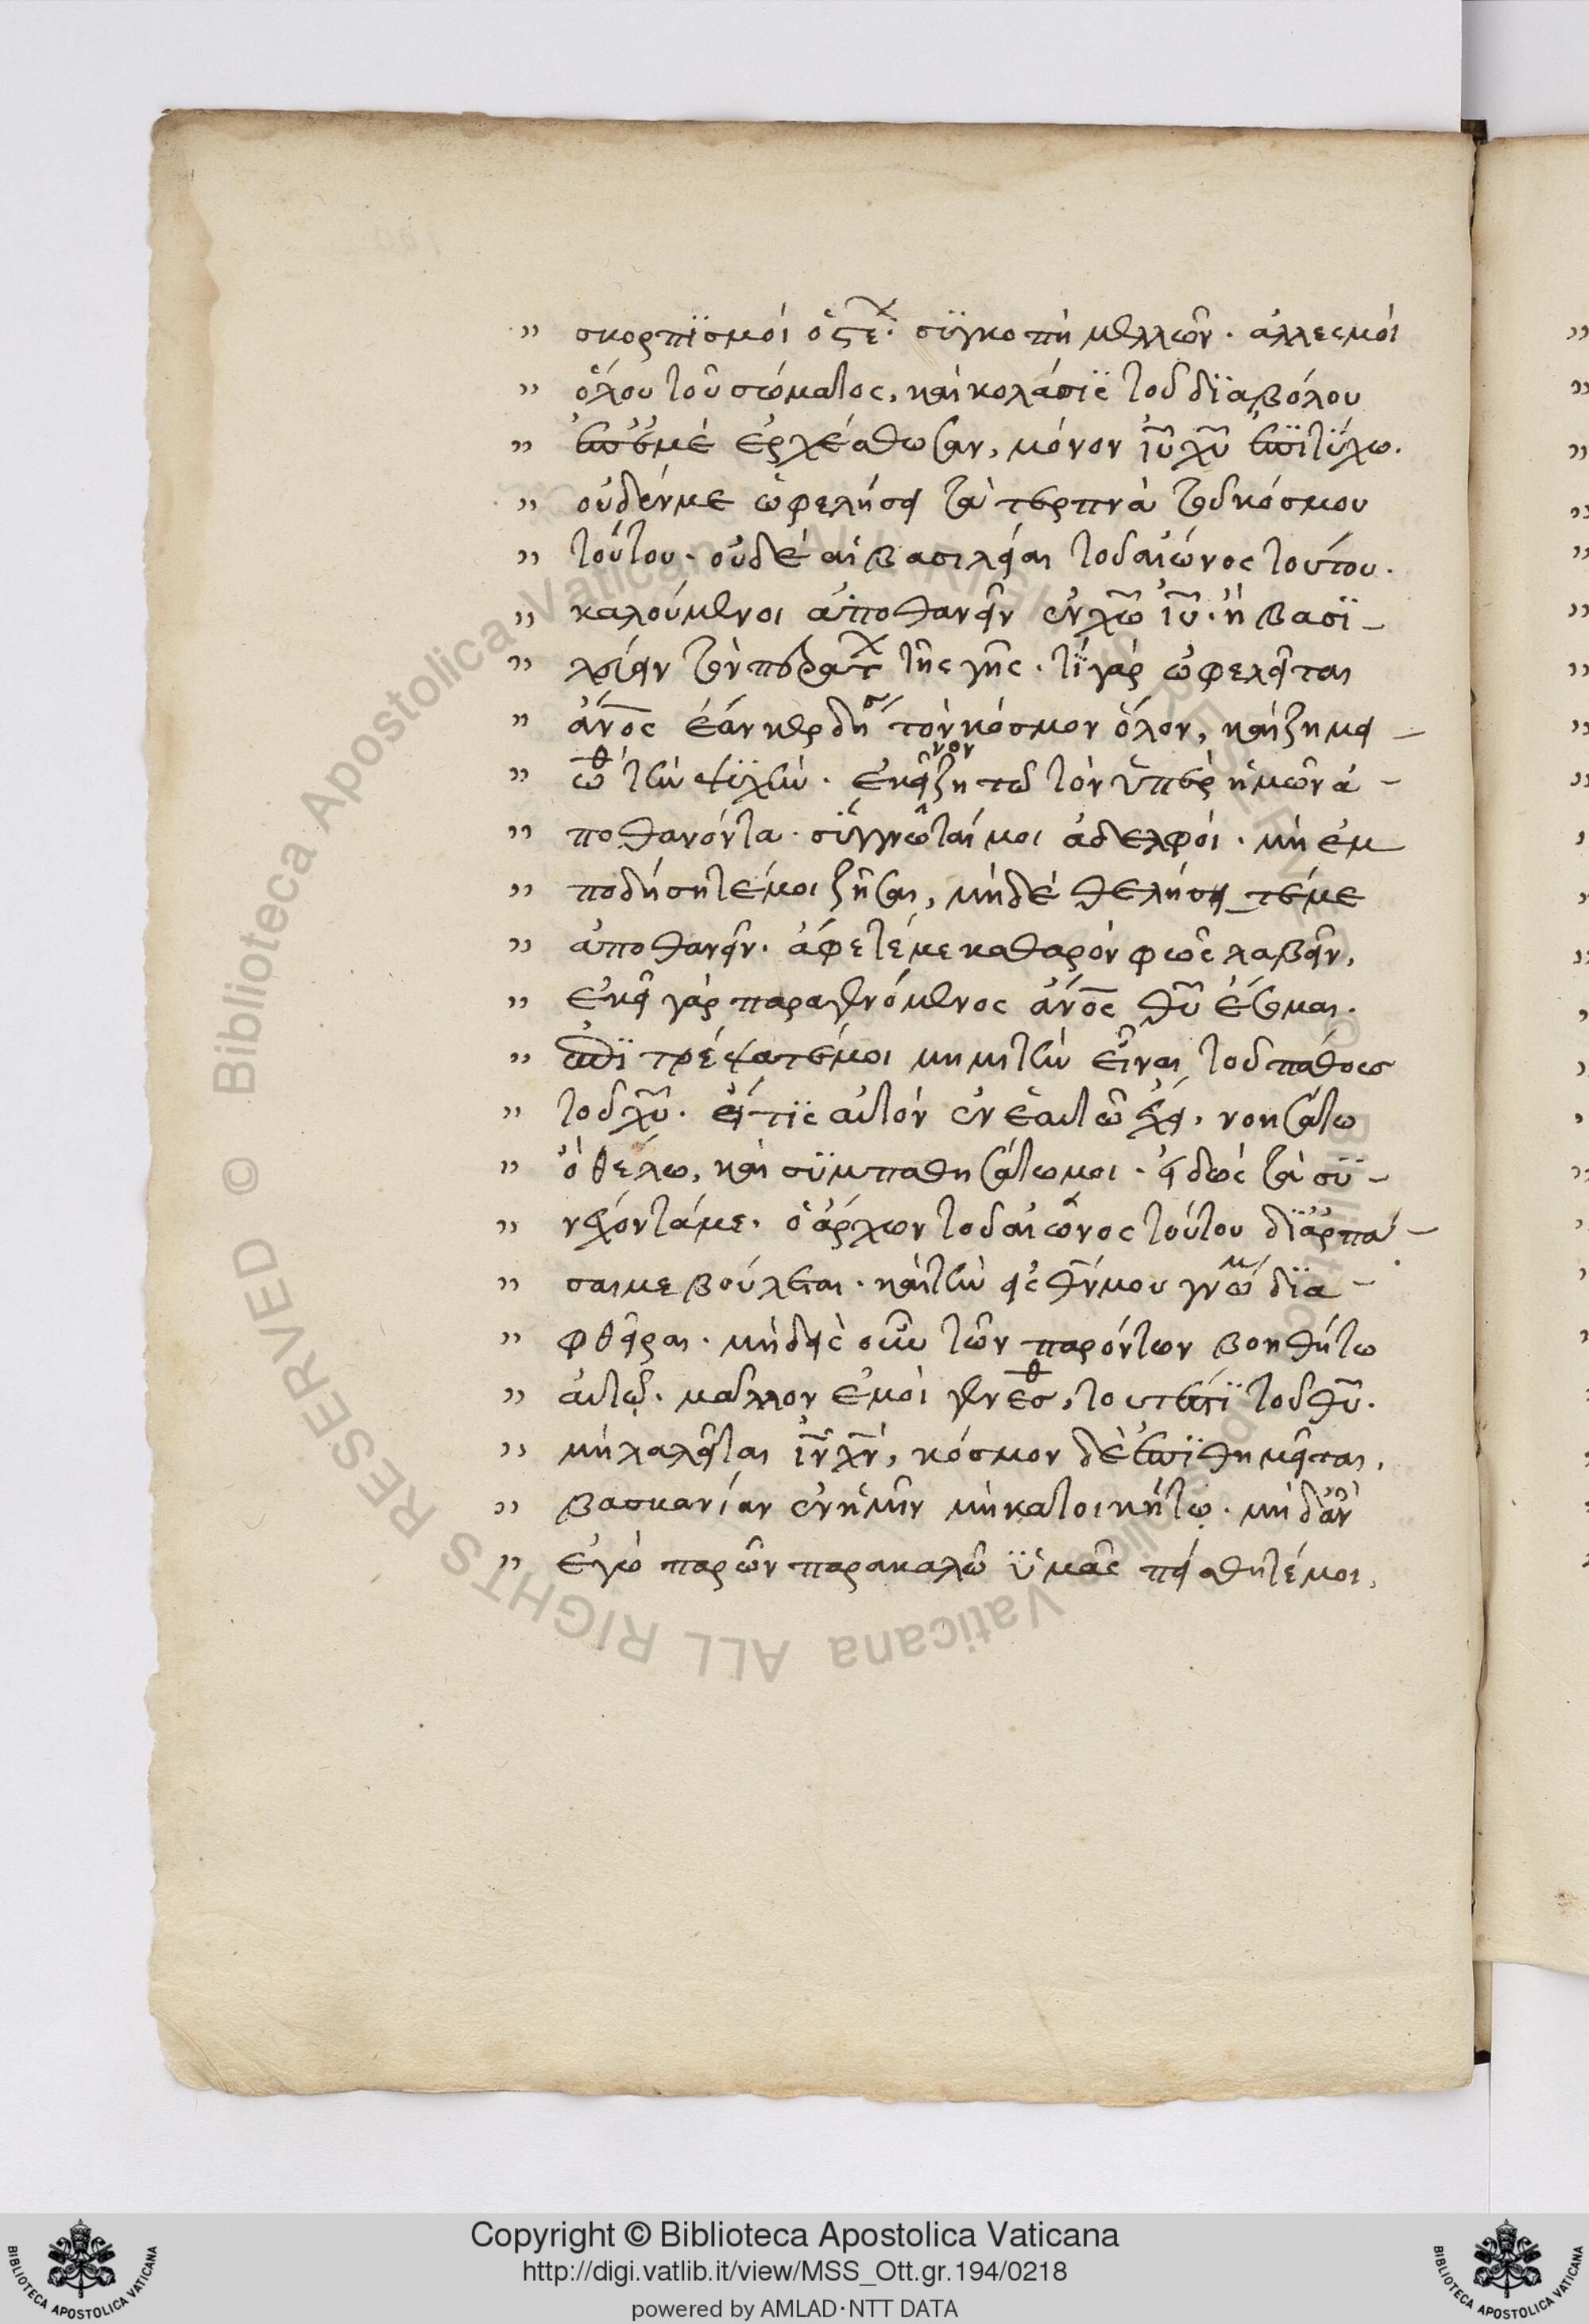 „ σκορπϊσμοὶ ὀστέ. σϋγκοπὴ μελλῶν. ἀλλεσμοὶ
„ ὅλου τοῦ σώματος, καὶ κολάσϊς τοῦ δϊαβόλου
„ ἐπ' ἐμὲ ἐρχέσθωσαν, μόνον ἰυ χυ ἐπϊτύχω.
„ οὐδέν με ὠφελήσει τὰ τερπνὰ τοῦ κόσμου
„ τούτου. οὐδὲ αἱ βασιλεῖαι τοῦ αἰῶνος τούτου.
„ καλούμενοι ἀποθανεῖν ἐν χω ιυ. ἢ βασϊ-
„ λεύειν τῶν περάτ τῆς γῆς. τί γὰρ ὠφελεῖται
„ ἄνος ἐὰν κερδήσ τὸν κόσμον ὅλον, καὶ ζημι
„ ωθ τὴν ψϋχὴν. ἐκεῖνον ζητῶ τὸν ὑπὲρ ἡμῶν ἀ-
„ ποθανόντα. σύγγνωταί μοι ἀδελφοί. μὴ ἐμ
„ ποδήσητέ μοι ζῆσαι, μὴδὲ θελήσητέ με
„ ἀποθανεῖν. ἄφετέ με καθαρὸν φῶς λαβεῖν,
„ ἐκεῖ γὰρ παραγενόμενος ἄνος θυ ἔσομαι.
„ ἐπϊτρέψατέ μοι μιμητὴν εἶναι τοῦ πάθους
„ τοῦ χυ. εἴ τϊς αὐτὸν ἐν ἑαυτῶ ἔχει, νοησάτω
„ ὃ θέλω, καὶ σϋμπαθησάτω μοι. εἰδὼς τὰ σϋ-
„ νέχοντά με. ὁ ἄρχων τοῦ αἰῶνος τούτου δϊαρπά-
„ σαι με βούλεται. καὶ τὴν εἰς θν μου γνώμ δϊα-
„ φθεῖραι. μὴδεὶς οὖν τῶν παρόντων βοηθήτω
„ αὐτῷ. μᾶλλον ἐμοὶ γίνεσθ, τουτέστϊ τοῦ θυ.
„ μὴ λαλεῖται ιν χν, κόσμον δὲ ἐπϊθυμεῖται,
„ βασκανίαν ἐν ἡμῖν μὴ κατοικήτῳ. μὴ δ' ἂν
„ ἐγὼ παρὼν παρακαλῶ ὑμᾶς πείσθητέ μοι,
Copyright © Biblioteca Apostolica Vaticana
http://digi.vatlib.it/view/MSS_Ott.gr.194/0218
powered by AMLAD·NTT DATA